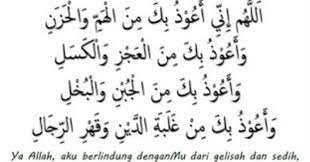 اَللّٰهُمَّ إِنِّي أَعُوْذُ بِكَ مِنَ الْهَمِّ وَالْحَزَنِ
وَأَعُوْذُ بِكَ مِنَ الْعَجْزِ وَالْكَسَلِ
وَأَعُوْذُ بِكَ مِنَ الْجُبْنِ وَالْبُخْلِ
وَأَعُوْذُ بِكَ مِنْ غَلَبَةِ الدَّيْنِ وَقَهْرِ الرِّجَالِ
Ya Allah, aku berlindung denganMu dari gelisah dan sedih,